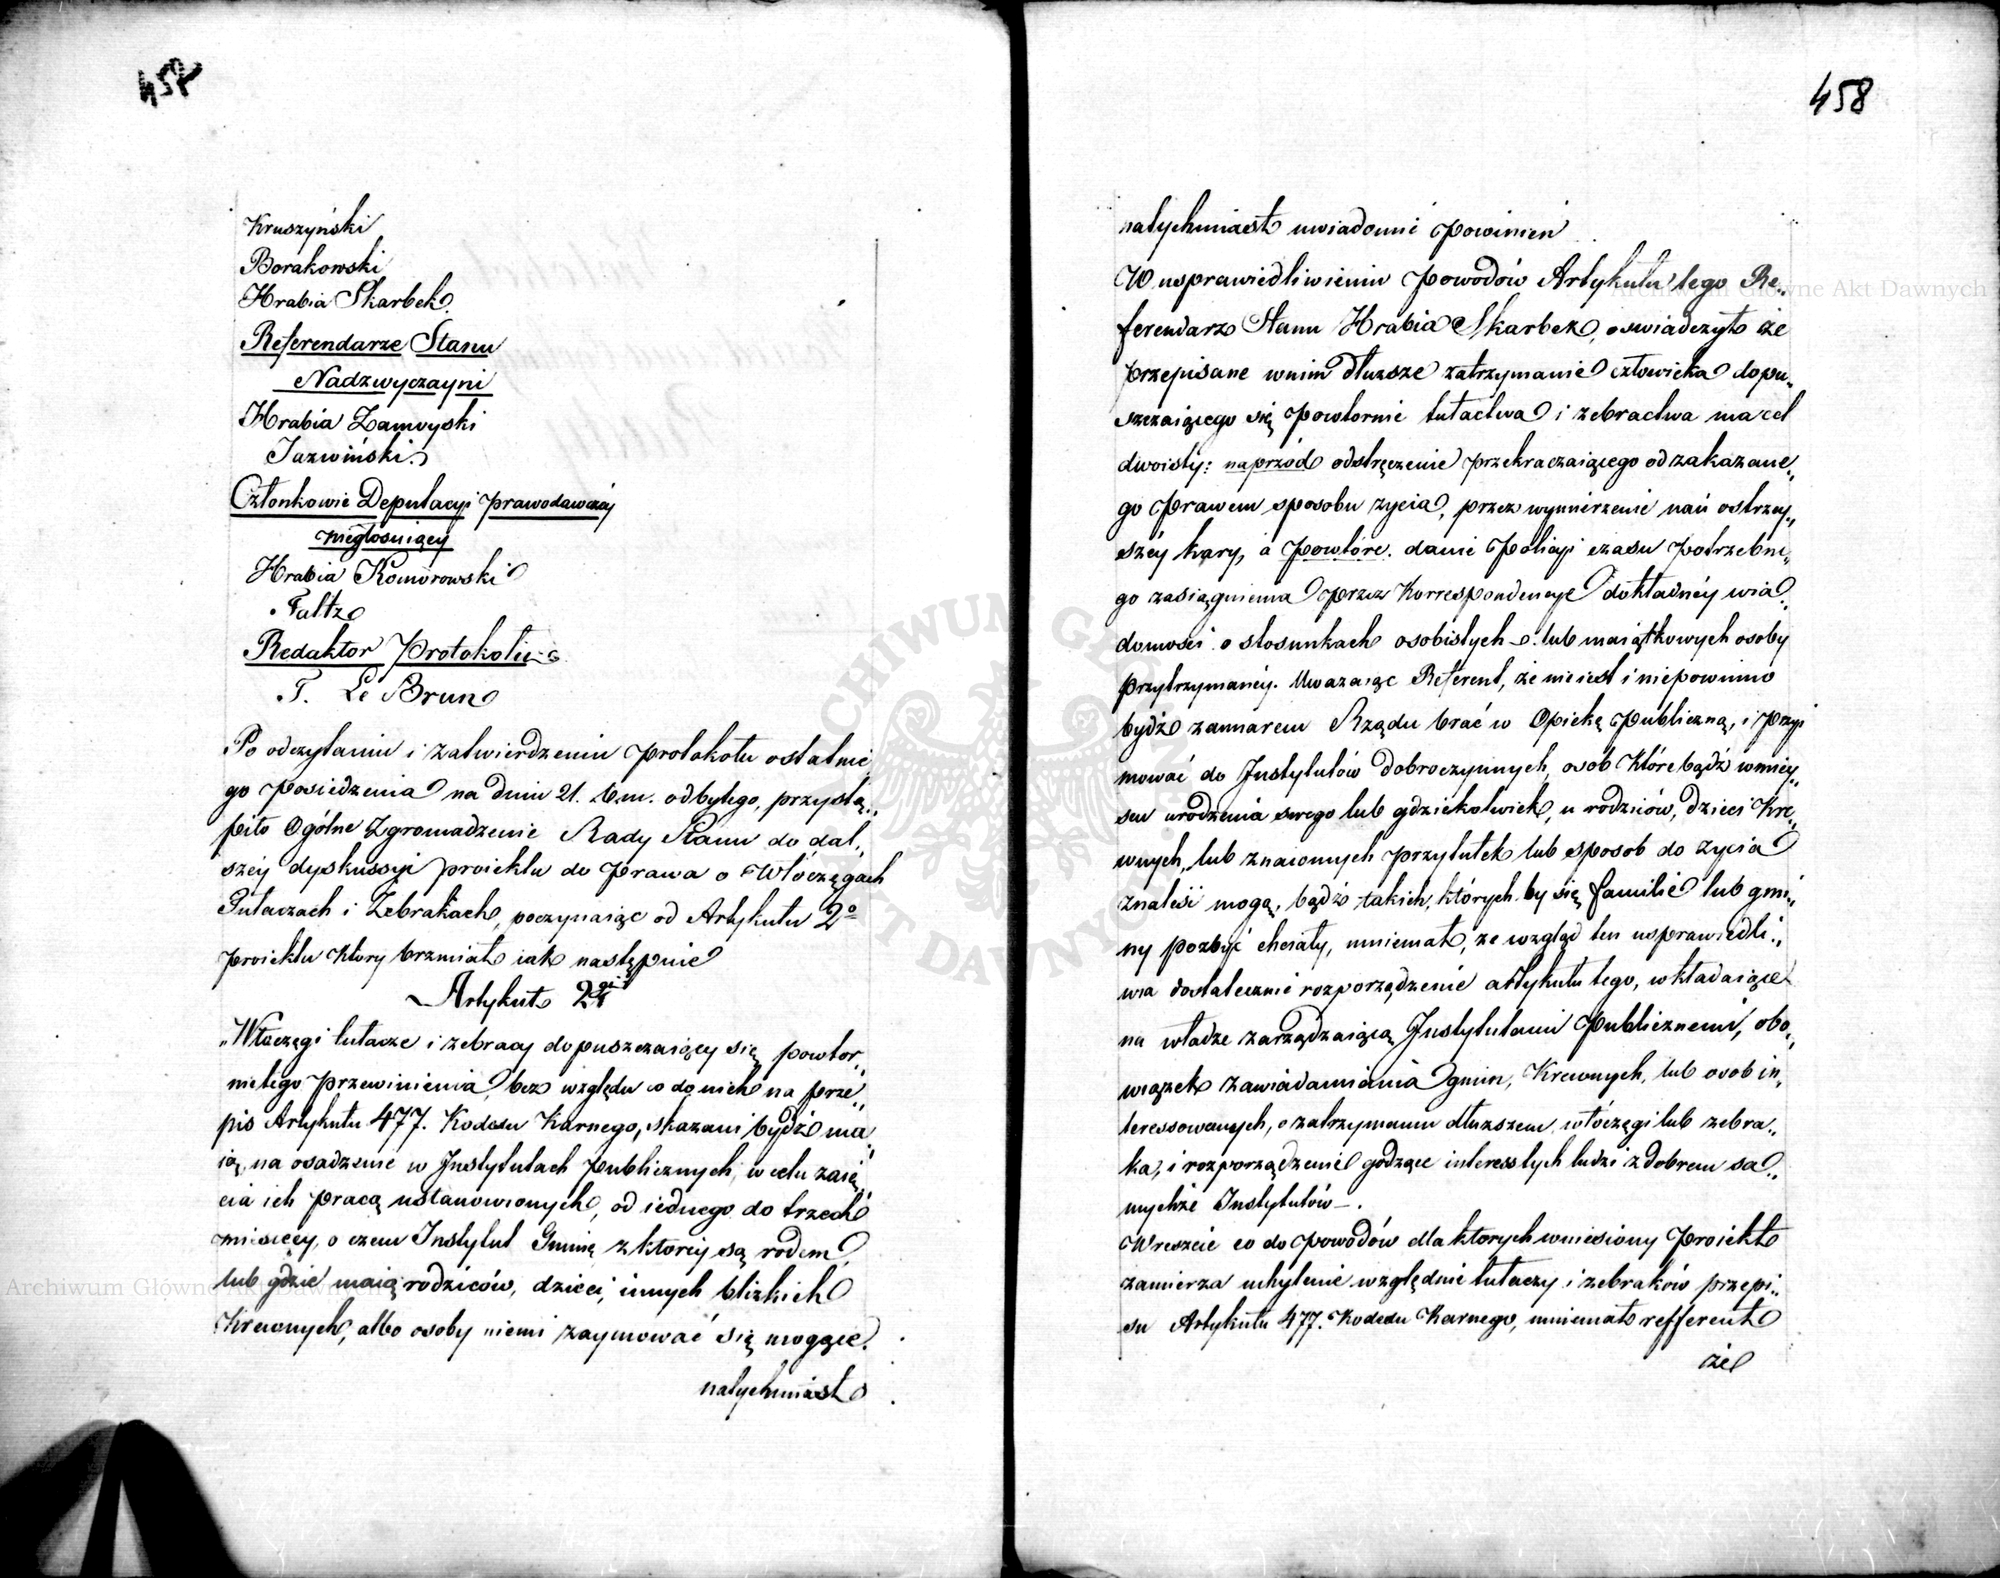 457
Kruszyński
Borakowski
Hrabia Skarbek.
Referendarze Stanu
Nadzwyczayni
Hrabia Zamoyski
Jazwiński.
Członkowie Deputacyi prawodawczéy
niegłosuiący
Hrabia Komorowski
Faltz
Redaktor Protokołu
T. Le Brun
Po odczytaniu i zatwierdzeniu protokołu ostatnie
go posiedzenia na dniu 21. b.m. odbytego, przystą„
piło Ogólne Zgromadzenie Rady Stanu do dal„
széy dyskussyi proiektu do prawa o Włóczęgach
Tułaczach i Żebrakach, poczynaiąc od Artykułu 2º
proiektu który brzmiał iak następnie
Artykuł 2gi
„Włóczęgi tułacze i żebracy dopuszczaiący się powtor„
nie tego przewinienia, bez względu co do nich na prze„
pis Artykułu 477. Kodexu Karnego, skazani bydź ma„
ią, na osadzenie w Instytutach publicznych, w celu zaię„
cia ich pracą ustanowionych, od iednego do trzech
miesięcy, o czem Instytut Gminę z któréy są rodem,
lub gdzie maią rodziców, dzieci, innych blizkich
Krewnych, albo osoby niemi zaymować się mogące.
natychmiast
458
natychmiast uwiadomić powinien
W usprawiedliwieniu powodów Artykułu tego Re„
ferendarz Stanu Hrabia Skarbek, oswiadczył że
przepisane w nim dłuższe zatrzymanie człowieka dopu„
szczaiącego się powtornie tułactwa i żebractwa ma cel
dwoisty: naprzód odstręczenie przekraczaiącego od zakazane„
go prawem sposobu życia, przez wymierzenie nań ostrzey„
széy kary, a powtóre. danie Policyi czasu potrzebne„
go zasiągnienia przez Korrespondencyę dokładnéy wia„
domości o stosunkach osobistych lub maiątkowych osoby
przytrzymanéy. Uważaiąc Referent, że nie iest i niepowinno
bydź zamiarem Rządu brać w Opiekę publiczną, i przyi
mować do Instytutów dobroczynnych, osob które bądź w miey„
scu urodzenia swego lub gdziekolwiek, u rodziców, dzieci Kre„
wnych, lub znaiomych przytułek lub sposob do życia
znaleśź mogą, bądź takich, których by się familie lub gmi„
ny pozbyć chciały, mniemał, że wzgląd ten usprawiedli„
wia dostatecznie rozporządzenie artykułu tego, wkładaiące
na władze zarządzaiącą Instytutami Publicznemi, obo„
wiązek zawiadamiania gmin, Krewnych, lub osob in„
teressowanych, o zatrzymaniu dłuższem włóczęgi lub żebra„
ka, i rozporządzenie godzące interess tych ludzi z dobrem sa„
mychże Instytutów.
Wreszcie co do powodów dla których wniesiony proiekt
zamierza uchylenie względnie tułaczy i żebraków przepi„
su Artykułu 477. Kodexu Karnego, mniemał refferent
że
Archiwum Główne Akt Dawnych